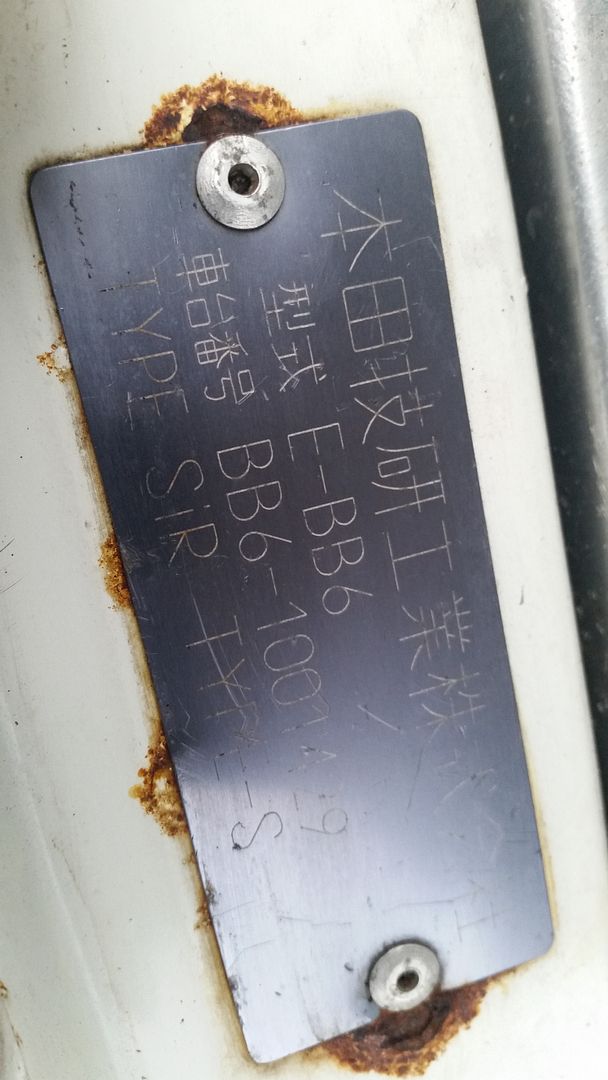 本田技研工業株式会社
型式 E-BB6
車台番号 BB6-1001429
TYPE SiR TYPE-S